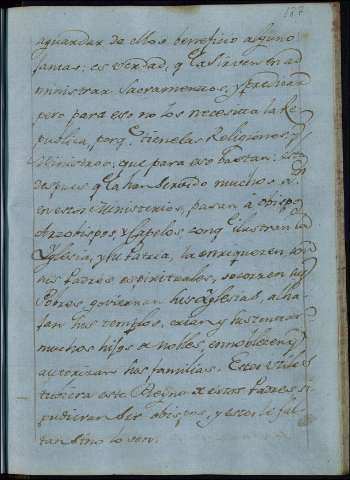 187
aguardar de ellos beneficio alguno
jamas: es verdad, q la sirven en ad
ministrar Sacramentos, y predicar
pero para eso no los necesita la Re
publica, porq tiene las Religiones y
Ministros, que para eso bastan:
despues q la han servido muchos a.s
en estos Ministerios, pasan a obispos
Arzobispos, y Capelos con q ilustran la
Yglesia, y su Patria, la enriquezen con
sus Padres espirituales, socorren sus
Pobres, goviernan sus Yglesias, alha
jan sus templos, crian y sustentan
muchos hijos de nobles, ennoblecen y
autorizan sus familias. Estos utiles
tubiera este Reyno de estos Padres si
pudieran ser obispos, y estos le fal
tan sino lo son.